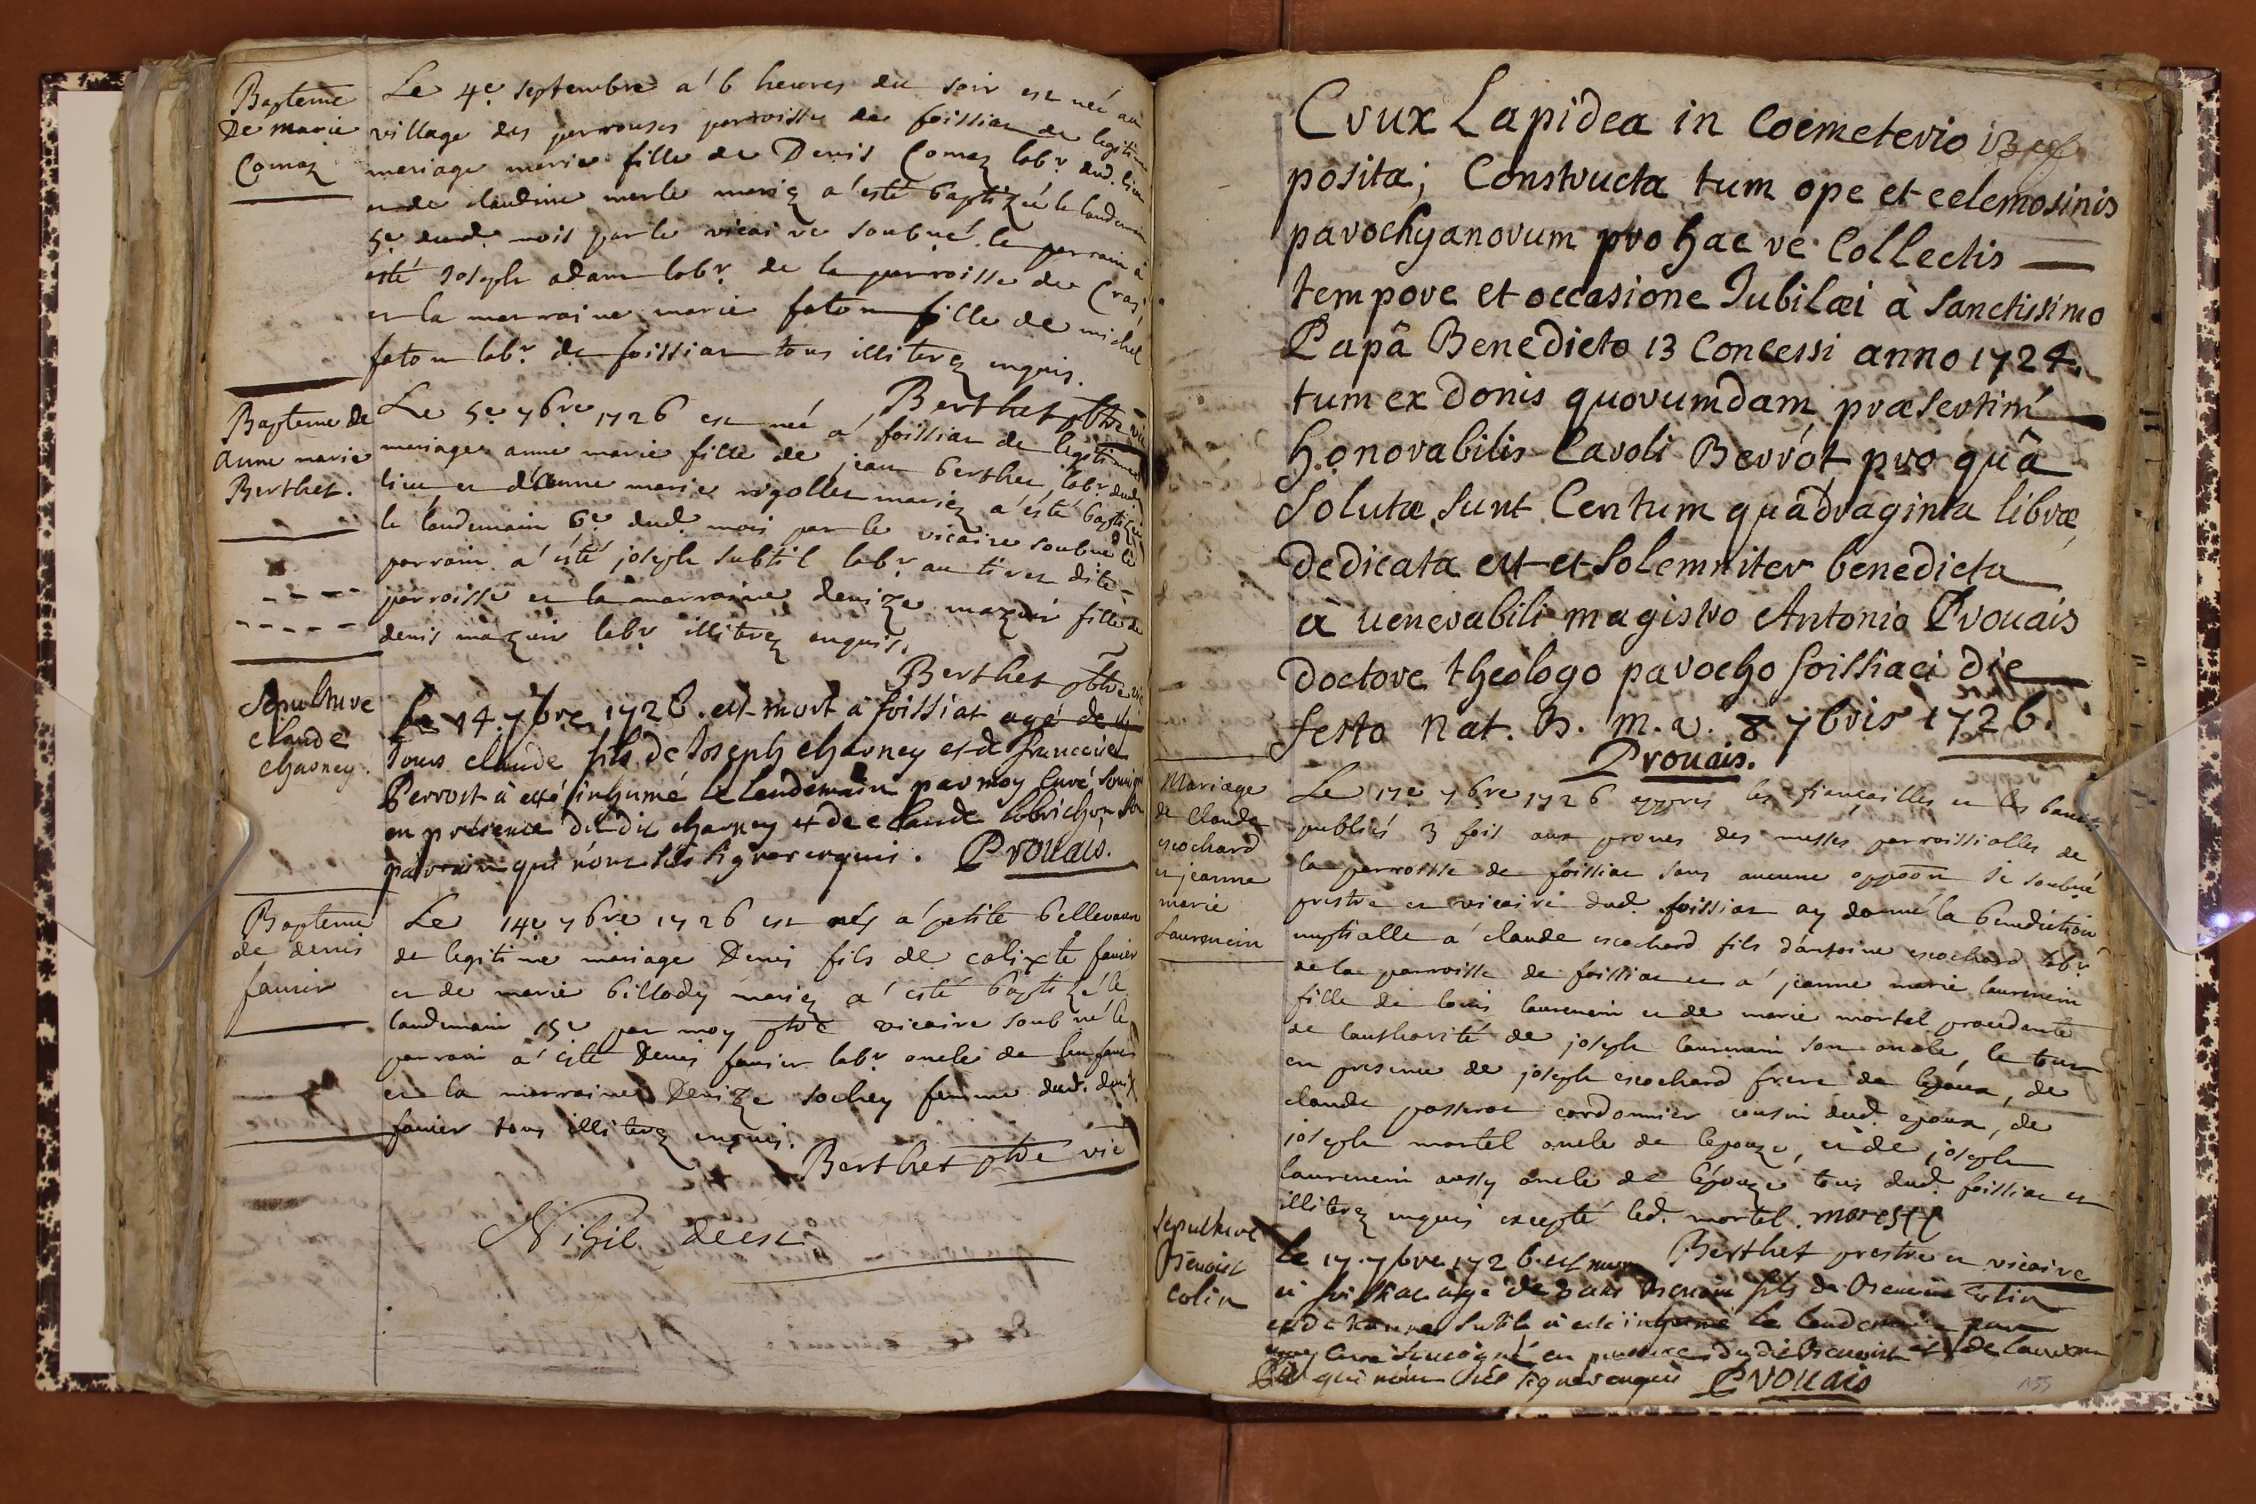 Bapteme
De marie
Comaz
Le 4e. septembre a 6 heures du soir est neé au
village des perrouses parroisse de foissiat de legitime
mariage marie fille de Denis Comaz labr. dud. lieu
et de claudine merle mariez a esté baptizeé le landemain
5e. dud. mois par le vicaire soubné. le parrain a
esté Joseph adam labr. de la parroisse de Cras,
et la marraine marie faton fille de michel
faton labr. de foissiat tous illiterez enquis.
Berthet pbre vic
Bapteme de
anne marie
Berthet.
Le 5e 7bre 1726 est neé a foissiat de legitime
mariage anne marie fille de jean berthet labr. dud.
lieu et d'anne marie rigollet mariez a esté baptizeé
le landemain 6e dud. mois par le vicaire soubné le
parrain a esté joseph subtil labr. au tiret dite
parroisse et la marraine denize mazuir fille de
denis mazuir labr. illiterez enquis.
Berthet pbre vic
Sepulture
claude
charney.
Le 14. 7bre 1726. est mort à foissiat agé de
Jours claude fils de Joseph charney et de francoise
Perrost à esté inhumé le lendemain par moy Curé soussigné
en présence du dit charney et de claude lobrichon son
parrain qui n'ont sçus signer enquis. Prouais.
Bapteme
de denis
favier
Le 14e 7bre 1726 est né a petite bellevavre
de legitime mariage Denis fils de calixte favier
et de marie billoudy mariez a esté baptizé le
landemain 15e par moy pbre vicaire soubné le
parrain a esté Denis favier labr. oncle de l'enfant
et la marraine Denize sochey femme dud. denis
favier tous illiterez enquis.
Berthet pbre vic
Nihil deest
Crux Lapidea in Coemeterio
posita; Constructa tum ope et eelemosinis
parochyanorum pro hac re Collectis
tempore et occasione Jubilæi à Sanctissimo
Papâ Benedicto 13 Concessi anno 1724.
tum ex donis quorumdam præsertim
honorabilis Caroli Berrót pro quâ
Solutæ sunt Centum quadraginta libræ,
Dedicata est et Solemniter benedicta
à venerabili magistro Antonio Prouais
Doctore theologo parocho foissiaci die
festo nat. B. m. v. 8 7bris 1726.
Prouais.
Mariage
de claude
escochard
et jeanne
marie
Laurencin
Le 17e 7bre 1726 appres les fiançailles et les bancts
publiés 3 fois aux prones des messes parroissialles de
la parroisse de foissiat sans aucune oppoon je soubné
prestre et vicaire dud. foissiat ay donné la benediction
nuptialle a claude escochard fils d'antoine escochard labr.
de la parroisse de foissiat et a jeanne marie laurencin
fille de louis laurencin et de marie mortel procedante
de l'authorité de joseph laurencin son oncle, le tout
en presence de joseph escochard frere de lepoux, de
claude passerat cordonnier cousin dud. epoux, de
joseph mortel oncle de lepouze, et de joseph
laurencin aussy oncle de l'épouze tous dud. foissiat et
illiterez enquis excepté led. mortel.
Berthet prestre et vicaire
Sepulture
Benoist
Colin
Le 17. 7bre 1726. est mort
à foissiac agé de 2 ans Benoist fils de Benoist Colin
et de Subtil à esté inhumé le lendemain par
moy Curé Soussigné en presence du dit Benoist et de
qui n'ont sçus signer enquis Prouais
155